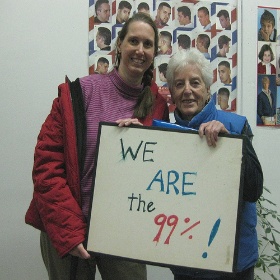 WE
ARE
the
99% !